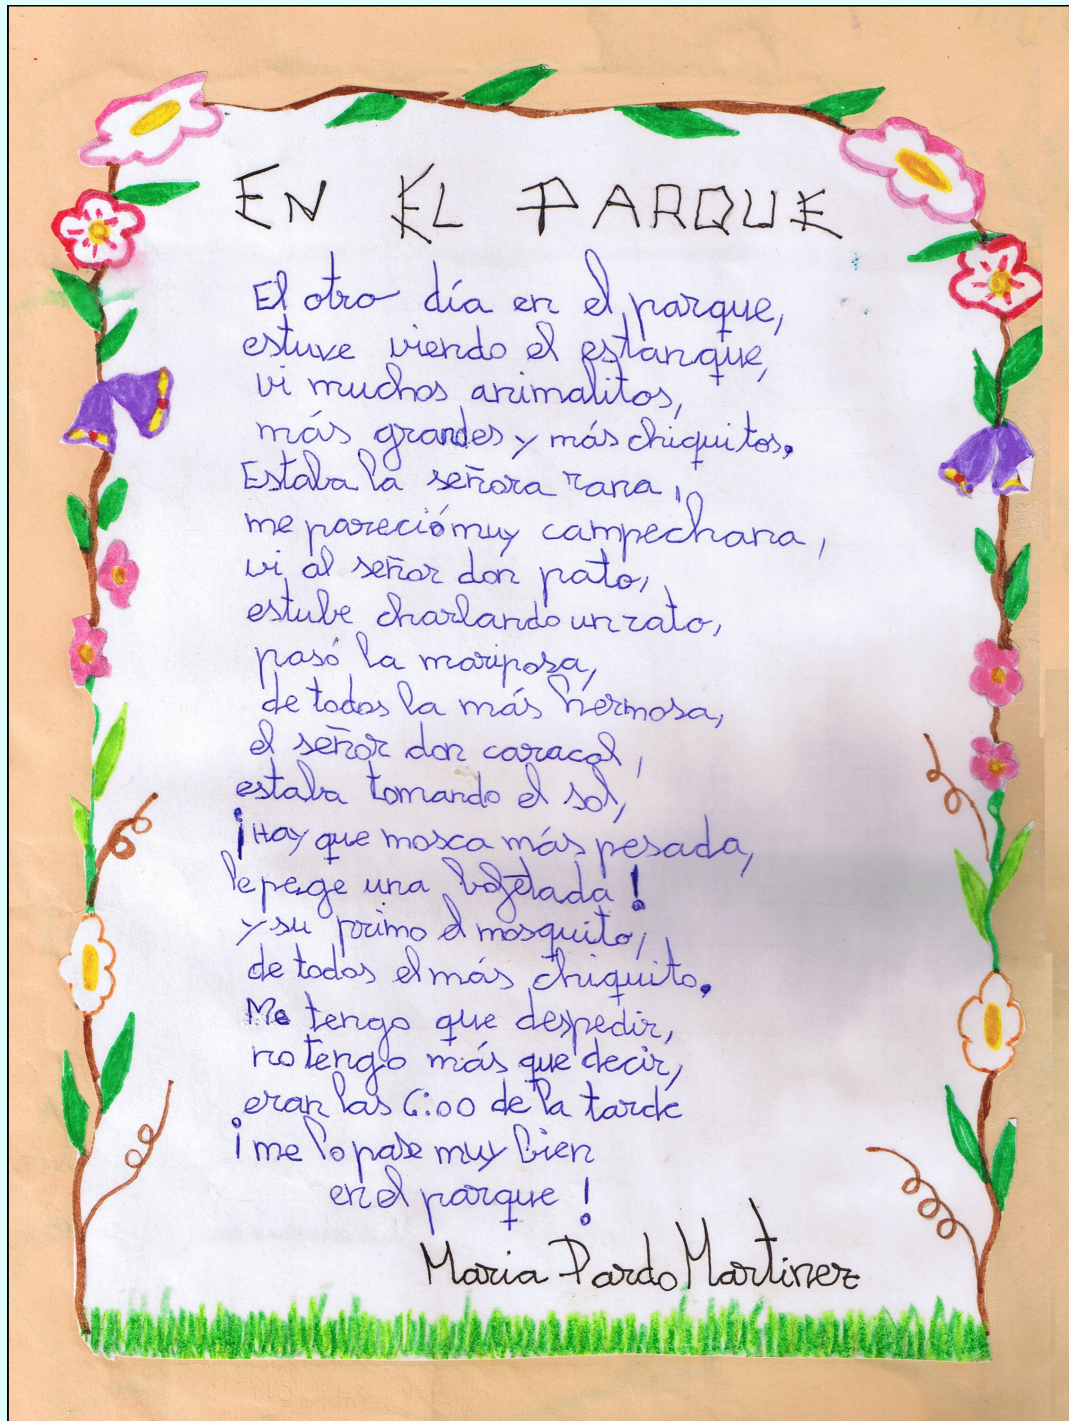 EN EL PARQUE
El otro día en el parque,
estuve viendo el estanque,
vi muchos animalitos,
más grandes y más chiquitos.
Estaba la señora rana,
me pareció muy campechana,
vi al señor don pato,
estube charlando un rato,
pasó la mariposa,
de todos la más hermosa,
el señor don caracol,
estaba tomando el sol,
¡Hay que mosca más pesada,
le pege una bofetada!
y su primo el mosquito,
de todos el más chiquito.
Me tengo que despedir,
no tengo más que decir,
eran las 6:00 de la tarde
¡me lo pase muy bien
en el parque!
Maria Pardo Martinez